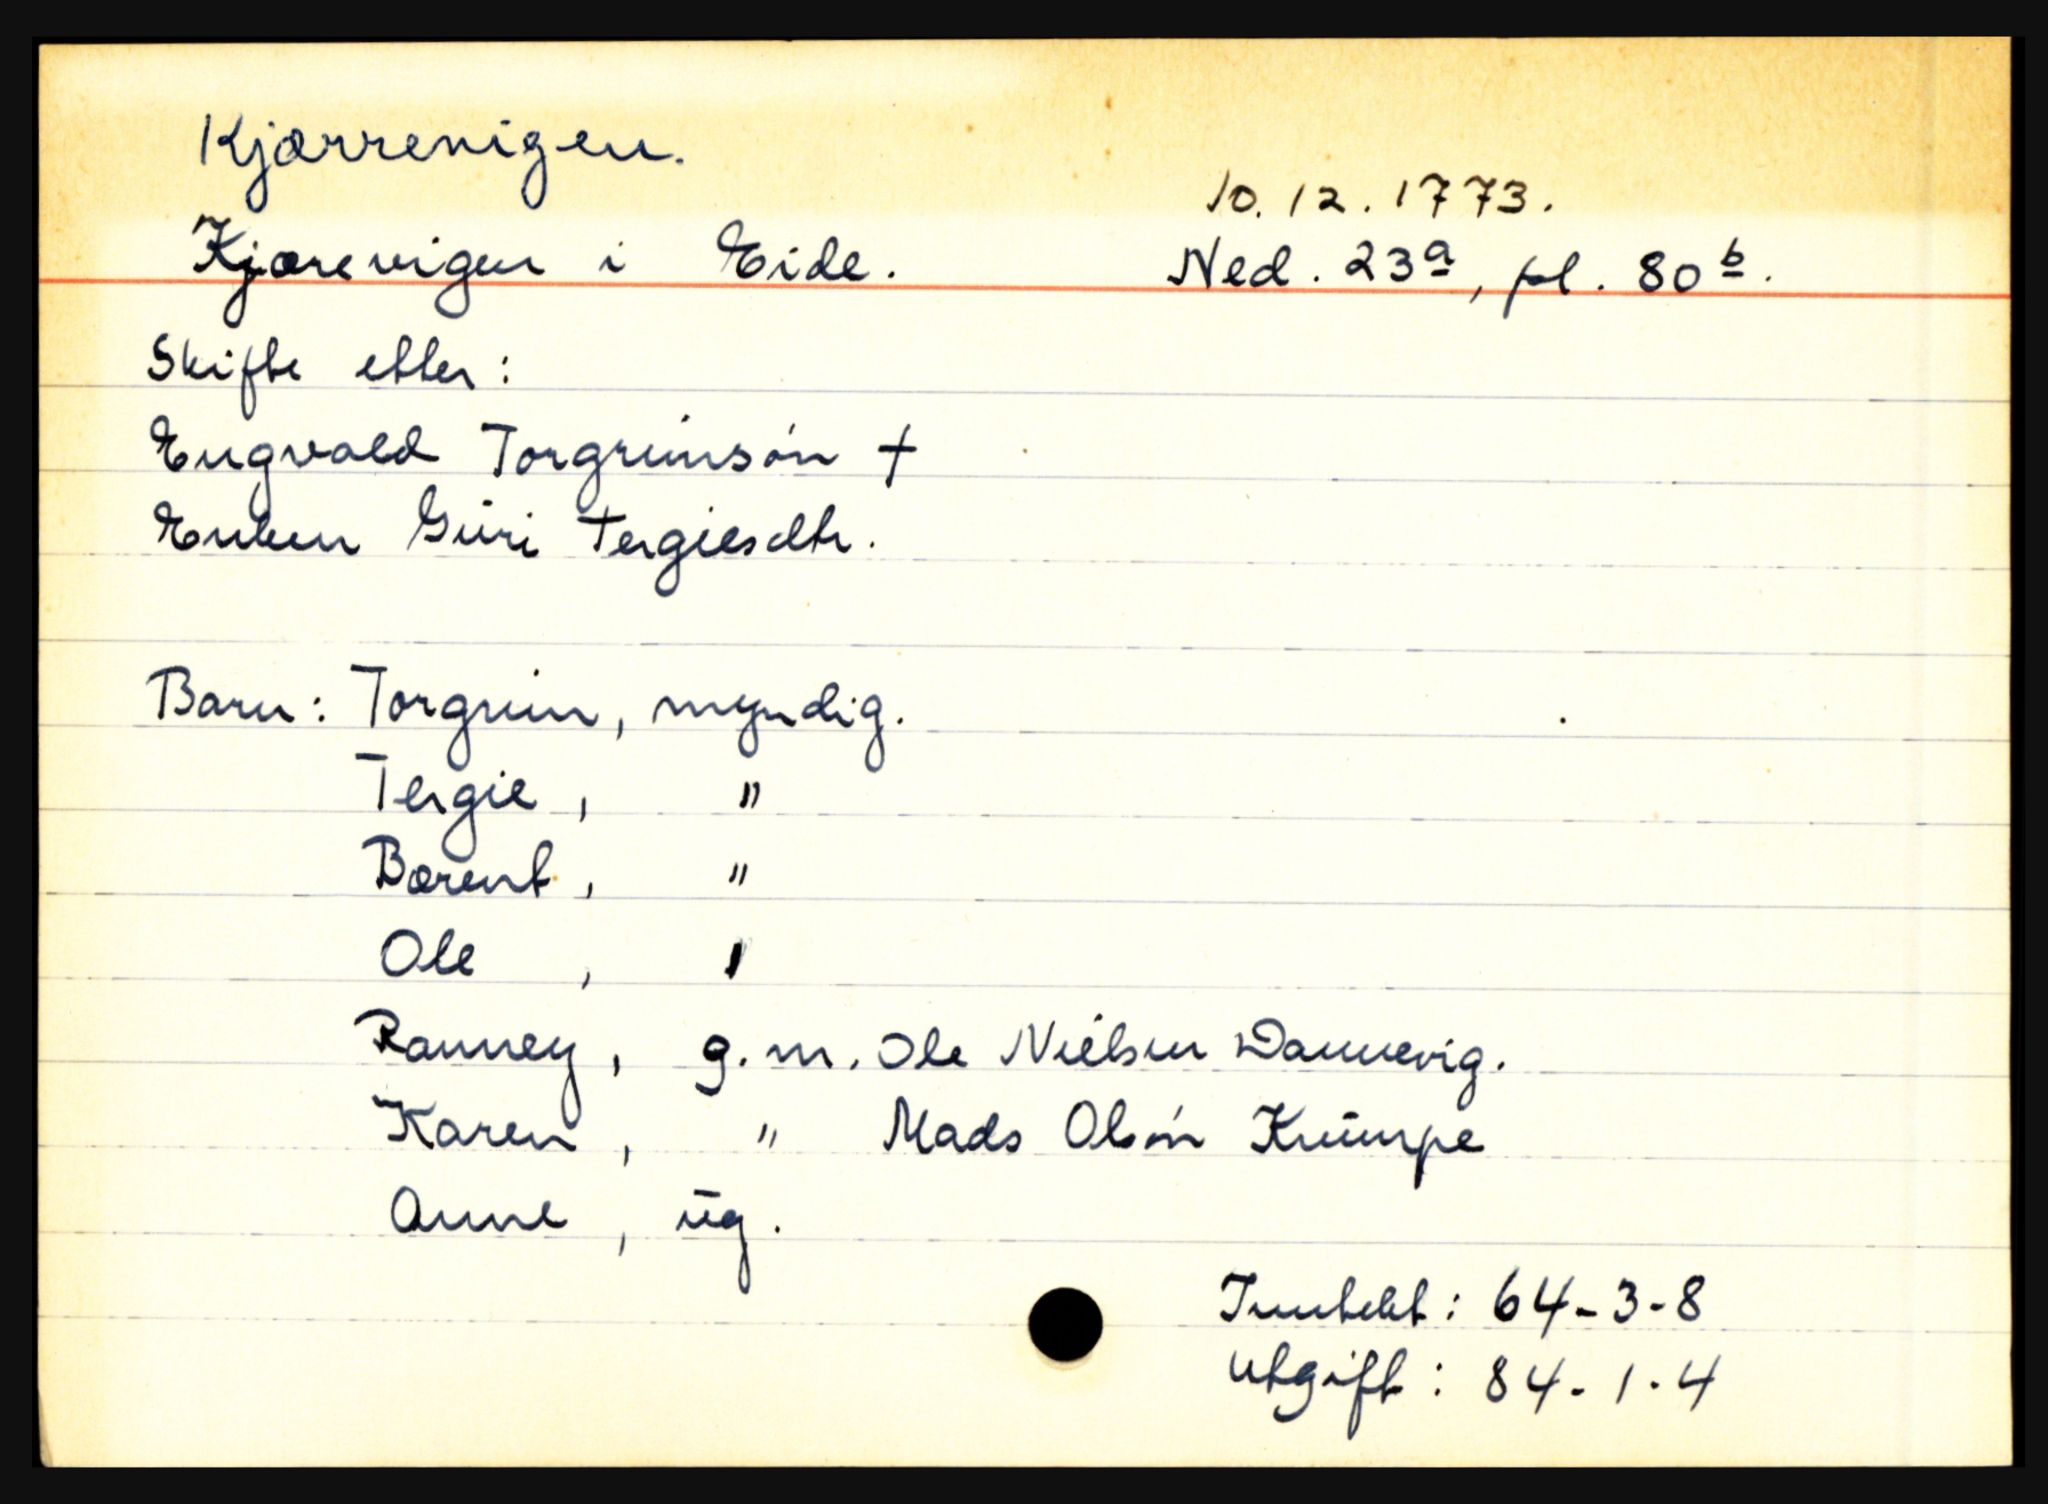 Kjærrevigen.
10.12.1773.
Kjærevigen i Eide.
Ned. 23a, pl. 80b.
Skifte etter:
Engvald Torgrimsøn †
Enken Guri Tergiesdtr.
Barn: Torgrim, myndig.
Tergie, "
Bærent, "
Ole, "
Ranney, g.m. Ole Nielsen Dannevig.
Karen, " Mads Olsøn Krumpe
Anne, ug.
Inntekt: 64-3-8
Utgift: 84-1-4